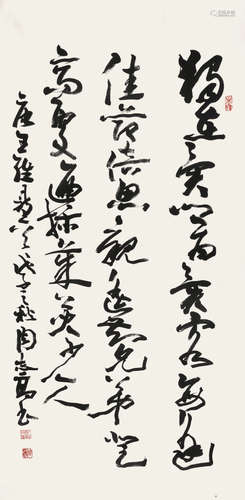 獨在異鄉為異客每逢
佳節倍思親遙知兄弟登
高處遍插茱萸少一人
唐王維戊子秋周志高書